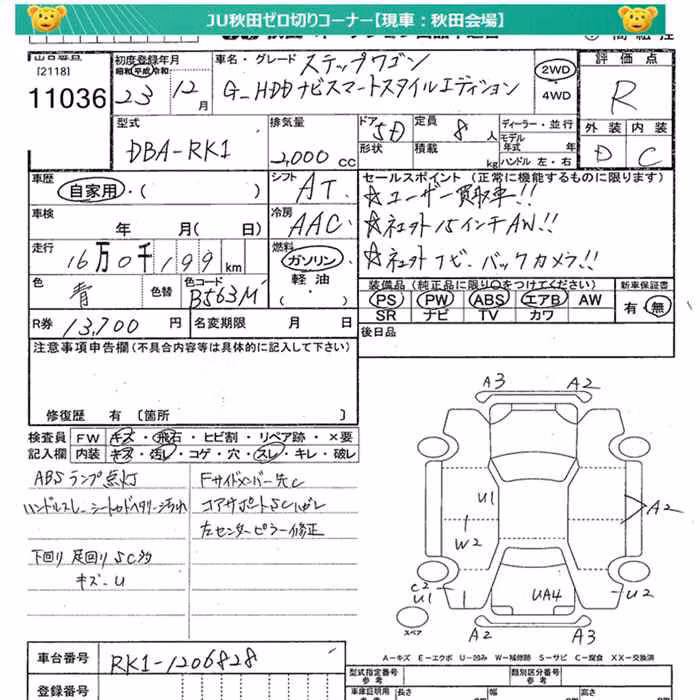 JU秋田ゼロ切りコーナー【現車：秋田会場】
[2118]
11036
初度登録年月
昭和 平成 令和
23年 12月
車名・グレード ステップワゴン
G_HDDナビスマートスタイルエディション
2WD
4WD
評価点
R
外装 内装
D C
型式
DBA-RK1
排気量
2,000 cc
ドア 5D
形状
定員 8人
積載 kg
ディーラー・並行
モデル年式 年
ハンドル 左・右
車歴
自家用・( )
シフト AT
セールスポイント (正常に機能するものに限ります)
☆ユーザー買取車!!
☆社外15インチAW!!
☆社外ナビ.バックカメラ!!
車検
年 月( 日)
冷房 AAC
走行
16万0千199km
燃料
ガソリン
軽油
・( )
色 青
色替
色コード B563M
装備品 (純正品に限り○をつけてください)
PS PW ABS エアB AW
SR ナビ TV カワ
新車保証書
有・無
R券 13,700円
名変期限 月 日
後日品
注意事項申告欄 (不具合内容等は具体的に記入して下さい)
修復歴 有 [箇所 ]
検査員記入欄
FW キズ・飛石・ヒビ割・リペア跡・×要
内装 キズ・汚レ・コゲ・穴・スレ・キレ・破レ
ABSランプ点灯
ハンドルスレ シートカドイタリー汚れ
下回り 足回り SC多
キズ-U
Fサイドメンバー先C
コアサポートSCハガレ
左センターピラー修正
A3 A2
U1
W2
A2
C2
U1
UA4
U2
スペア
A2 A3
A-キズ E-エクボ U-凹み W-補修跡 S-サビ C-腐食 XX-交換済
車台番号 RK1-1206828
登録番号
型式指定番号
参考
類別区分番号
参考
車庫証明用
参考
長さ 幅 高さ